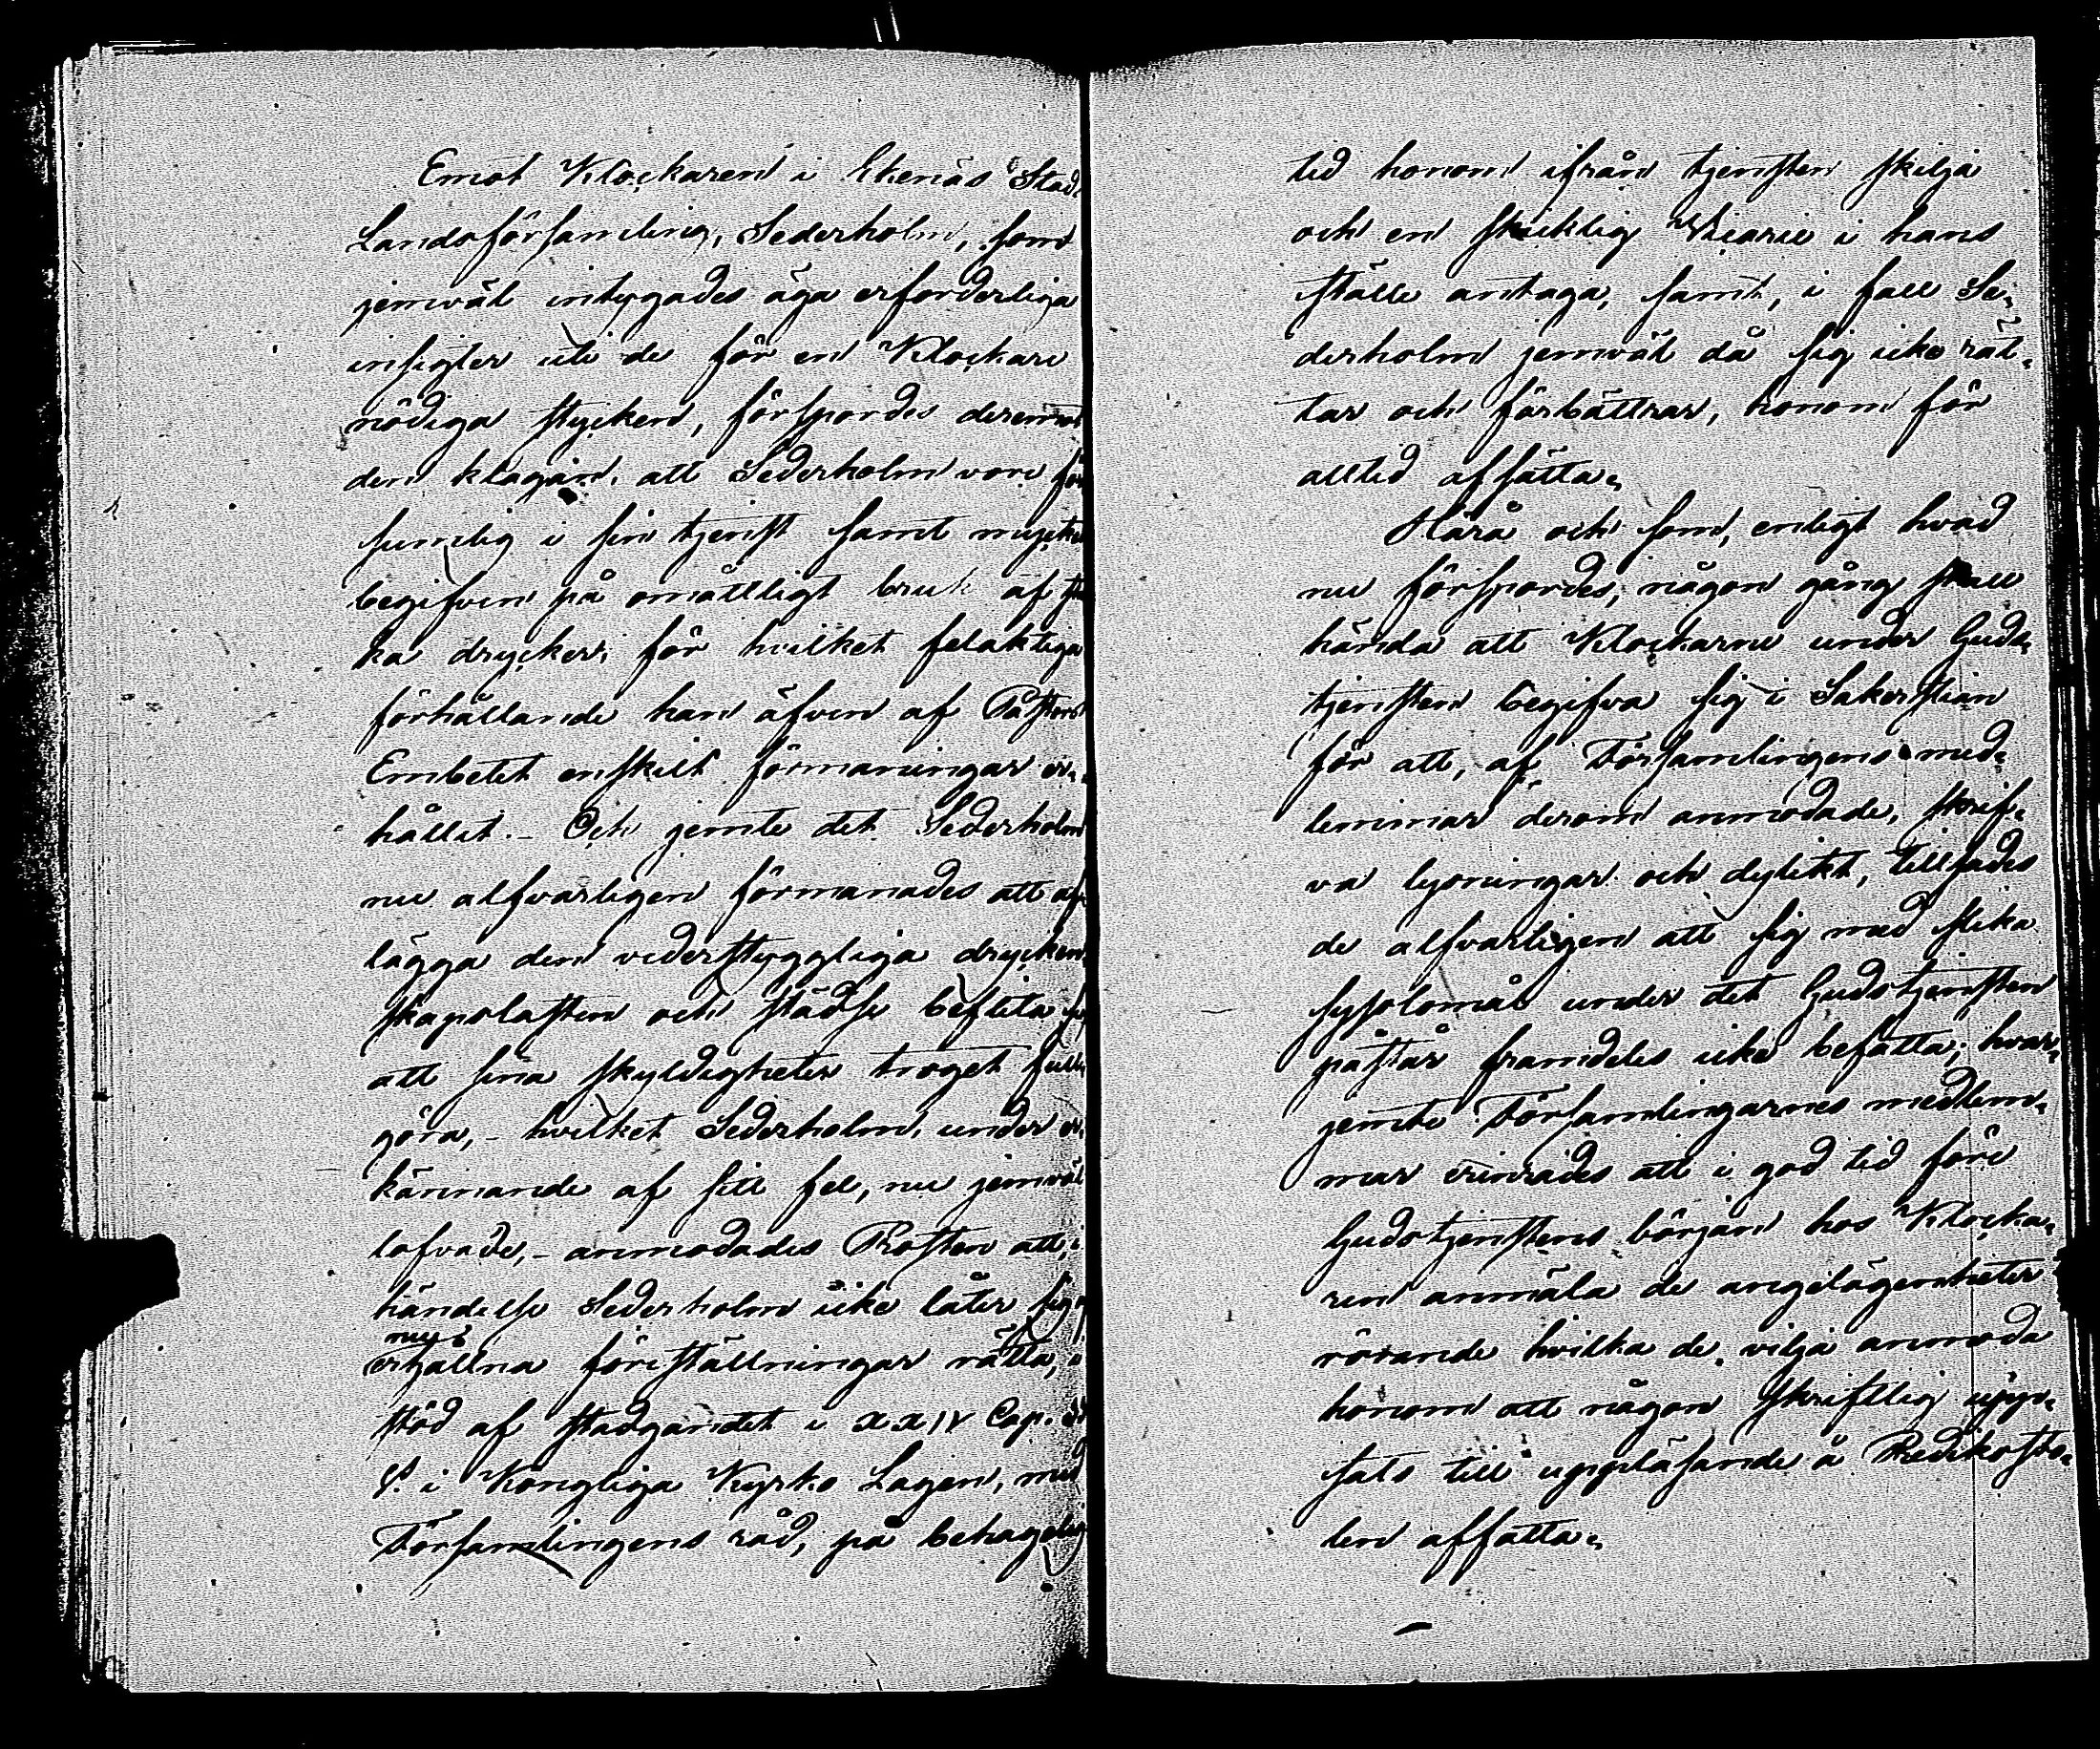 Emot Klockaren i Ekenäs Stads
Landsförsamling, Sederholm, som
jemväl intygades äga erforderliga
insigter uti de för en Klockare
nödiga stycken, förspordes deremot
den klagan, att Sederholm vore för
sumlig i sin tjenst samt mycket
begifven på omåttligt bruk af star
ka drycker, för hvilket felaktiga
förhållande han äfven af Pastors
Embetet enskilt förmaningar er-
hållit. - Och jemte det Sederholm
nu alfvarligen förmanades att af
lägga den vederstyggliga dryckens
skapslasten och städse beflita sig
att sina skyldigheter troget full
göra, - hvilket Sederholm, under er
kännande af sitt fel, nu jemväl
lofvade, - anmodades Prosten att, i
händelse Sederholm icke låter sig af
nu
erhållna föreställningar rätta, i
stöd af stadgandet i XXIV Cap.
§. i Kongliga Kyrko Lagen, med
Församlingens råd, på behagelig
tid honom ifrån tjensten skilja
och en skicklig Vicarie i hans
ställe antaga, samt, i fall Se-
derholm jemväl då sig icke rät-
tar och förbättrar, honom för
alltid afsätta.
Härå och som, enligt hvad
nu förspordes, någon gång skall
hända att Klockarne under Guds
tjensten begifva sig i Sakerstian
för att, af Församlingens med-
lemmar derom anmodade, skrif-
va lysningar och dylikt, tillsades
de alfvarligen att sig med slika
sysslomål under det Gudstjensten
påstår framdeles icke befatta; hvar-
jemte Församlingarnes medlem-
mar erinrades att i god tid före
Gudstjenstens början hos Klocka-
ren anmäla de angelägenheter
rörande hvilka de vilja anmoda
honom att någon skriftlig upp-
sats till uppläsande å Predikosto-
len affatta.